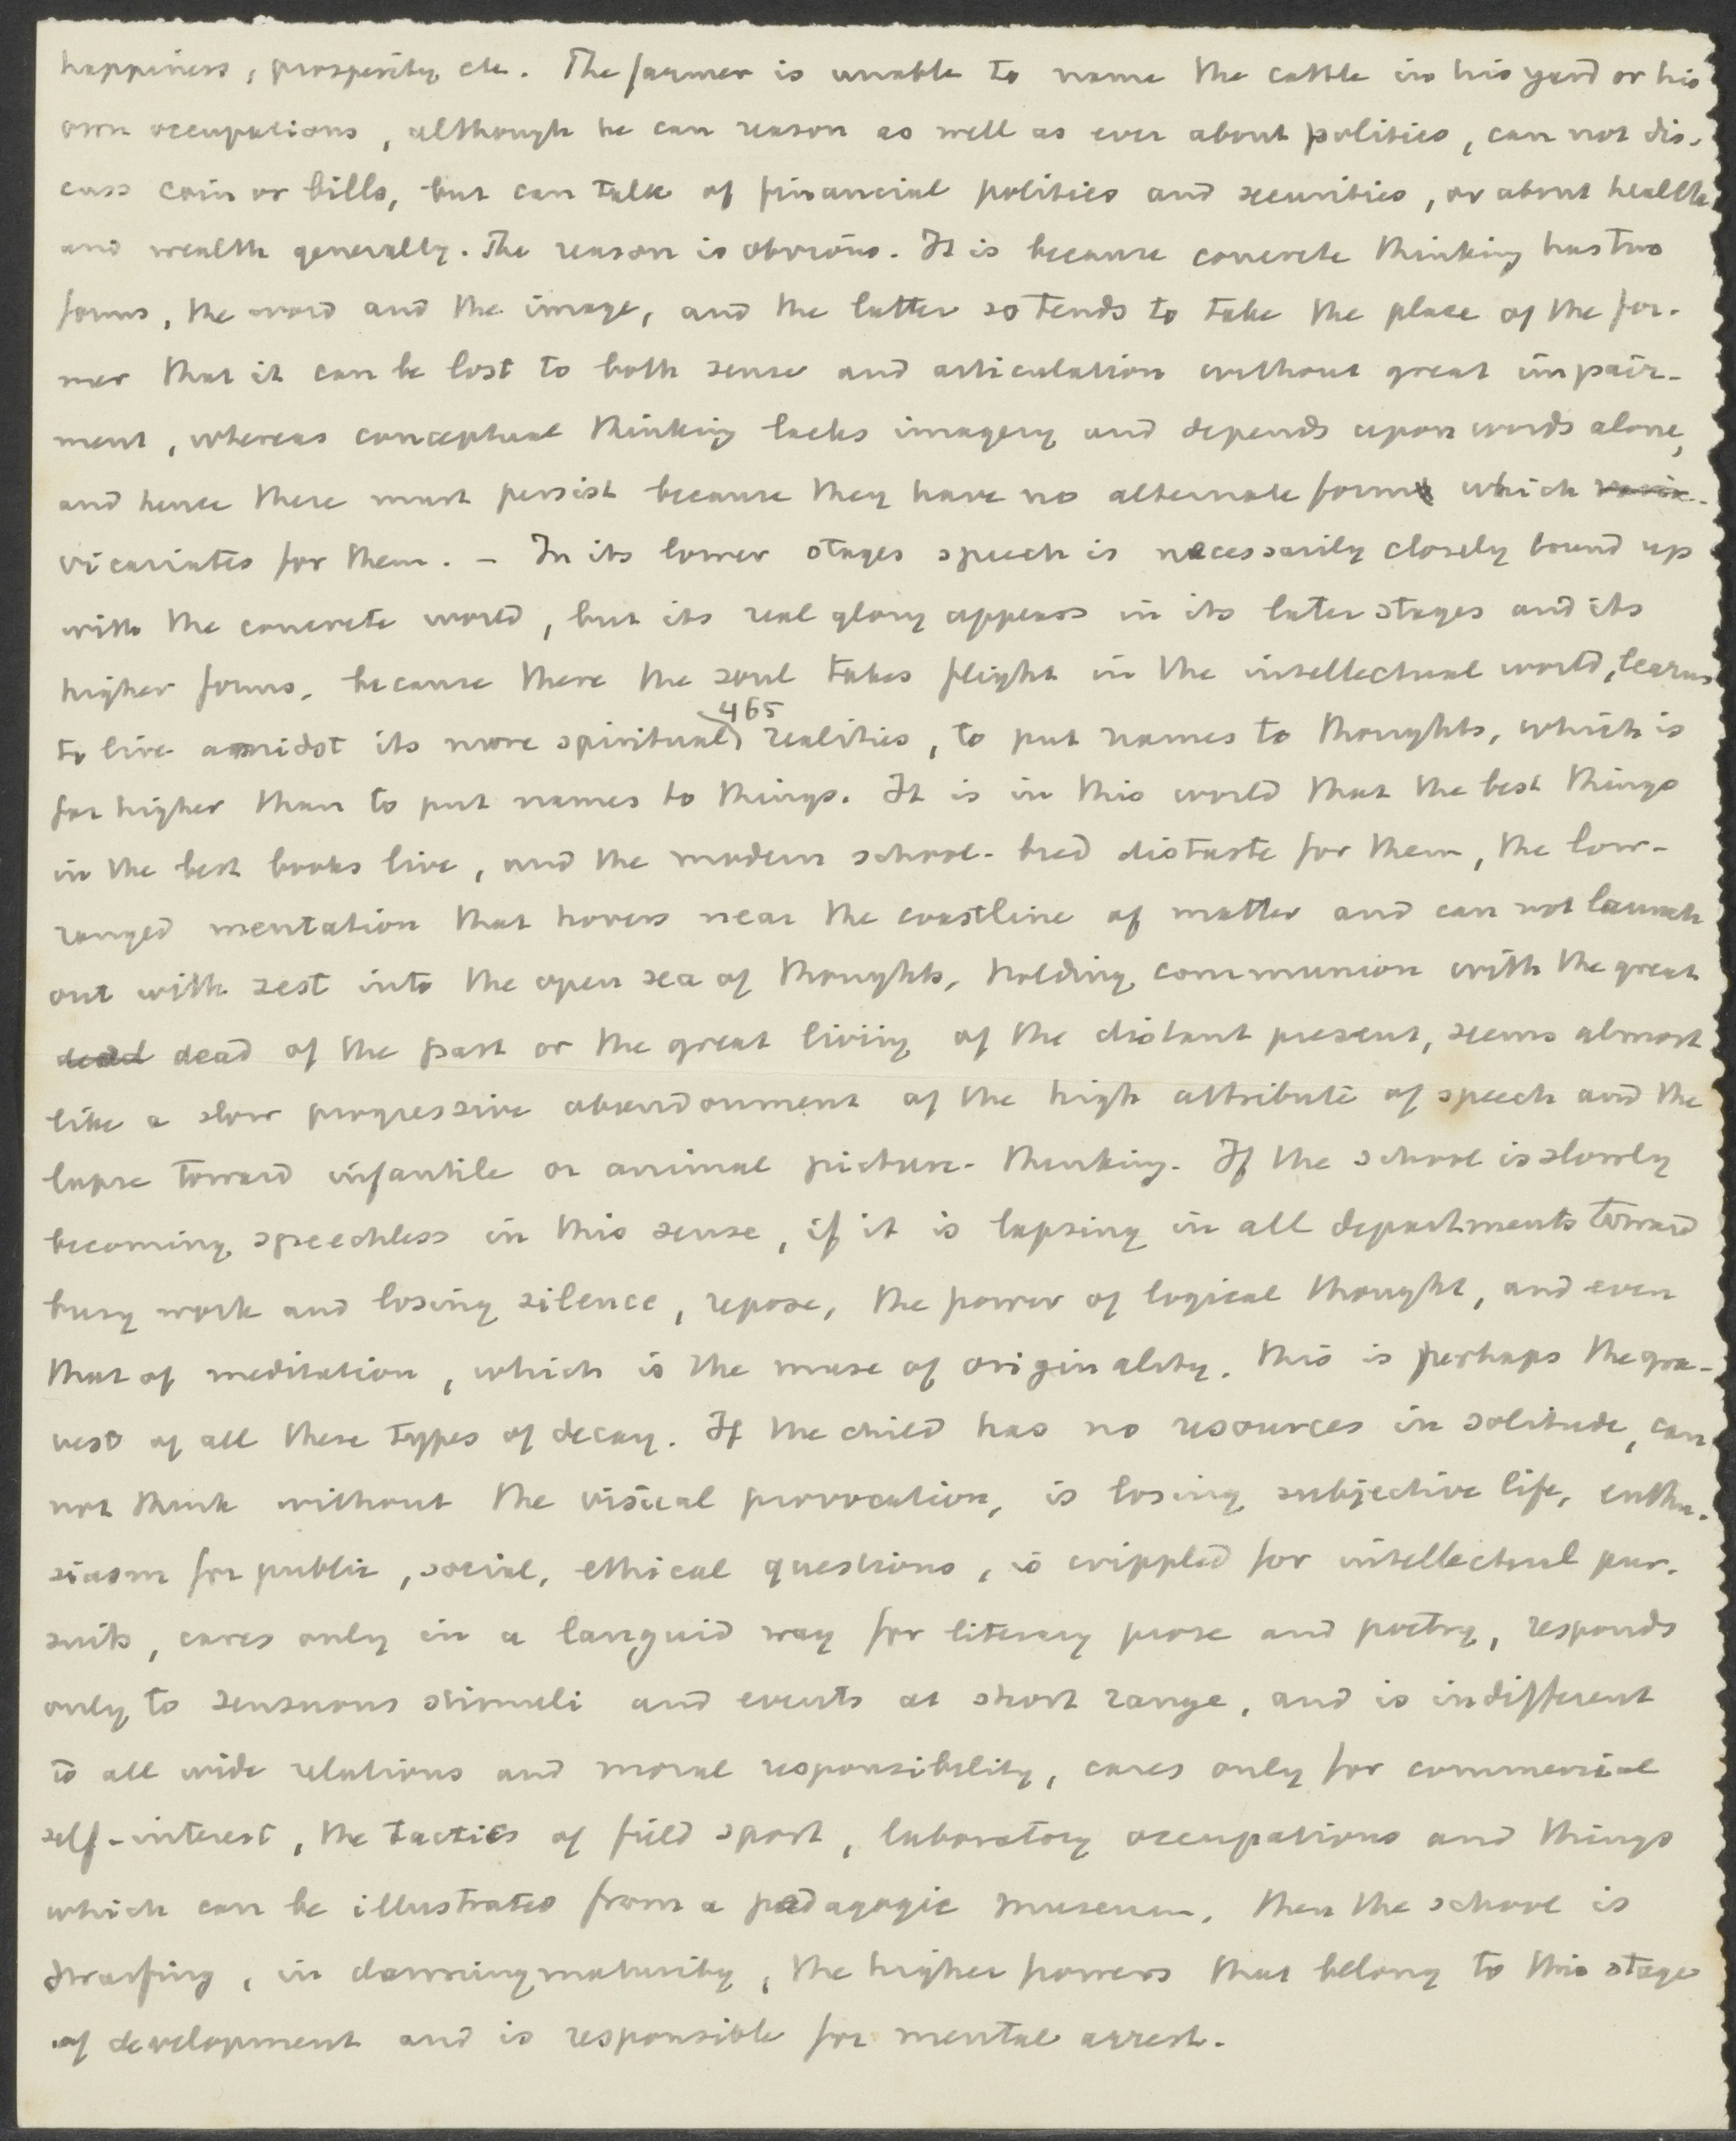 happiness, prosperity, etc. The farmer is unable to name the cattle in his yard or his
own occupations, although he can reason as well as ever about politics, can not dis-
cuss coin or bills, but can talk of financial politics and securities, or about health
and wealth generally. The reason is obvious. It is because concrete thinking has two
forms, the word and the image, and the latter so tends to take the place of the for-
mer that it can be lost to both sense and articulation without great impair-
ment, whereas conceptual thinking lacks imagery and depends upon words alone,
and hence these must persist because they have no alternate form which
vicariates for them. – In its lower stages speech is necessarily closely bound up
with the concrete world, but its real glory appears in its later stages and its
higher forms, because there the soul takes flight in the intellectual world, learns
465
to live amidst its more spiritual) realities, to put names to thoughts, which is
far higher than to put names to things. It is in this world that the best things
in the best books live, and the modern school-bred distaste for them, the low-
ranged mentation that hovers near the coastline of matter and can not launch
out with zest into the open sea of thoughts, holding communion with the great
dead dead of the past or the great living of the distant present, seems almost
like a slow progressive abandonment of the high attribute of speech and the
lapse toward infantile or animal picture-thinking. If the school is slowly
becoming speechless in this sense, if it is lapsing in all departments toward
busy work and losing silence, repose, the power of logical thought, and even
that of meditation, which is the muse of originality, this is perhaps the gra-
vest of all these types of decay. If the child has no resources in solitude, can
not think without the visual provocation, is losing subjective life, enthu-
siasm for public, social, ethical questions, is crippled for intellectual pur-
suits, cares only in a languid way for literary prose and poetry, responds
only to sensuous stimuli and events at short range, and is indifferent
to all wide relations and moral responsibility, cares only for commercial
self-interest, the tactics of field sport, laboratory occupations and things
which can be illustrated from a pedagogic museum, then the school is
dwarfing, in dawning maturity, the higher powers that belong to this stage
of development and is responsible for mental arrest.